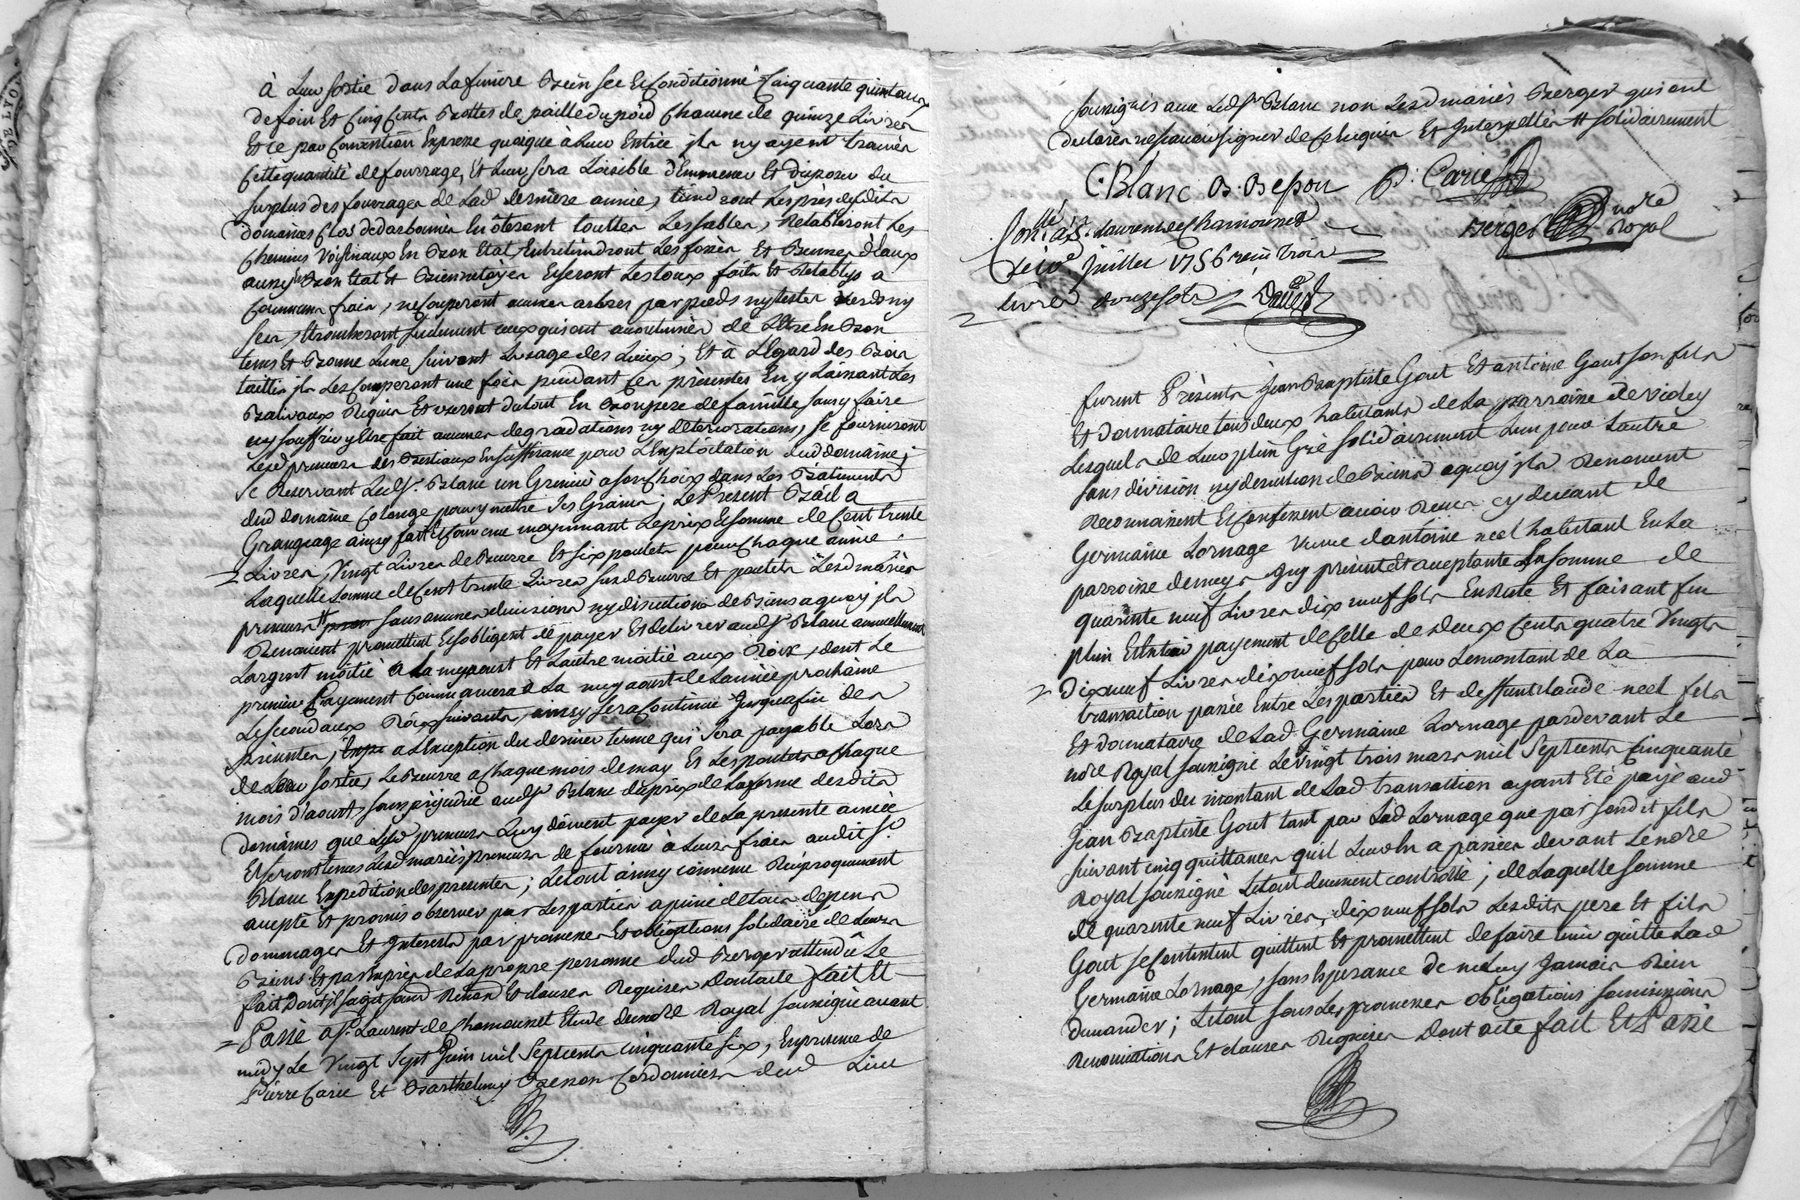 à Leur sortie dans La feniere Bien sec Et Conditionné Cinquante quintaux
de foin Et Cinq Cents Bottes de paille du poid Chacune de quinze Livres
Et ce par Convention Expresse quoique à Leur Entrée ils n'y ayent trouvé
Cette quantité de fourrage, Et Leur sera Loisible d'Emmener Et disposer du
surplus des fourrages de Lad dernière année, tiendront Les près desdits
domaines Clos de Ien ôteront toutes Les sables, Retabliront Les
Chemins Voisinaux En Bon Etat, Entretiendront Les fossés Et d'Eaux
aussy Bon Etat Et Bien netoyés Et seront Les tous faits Et Retablys a
Communs frais, ne Couperont aucuns arbres par pieds ny testes verds ny
secs, Etroncheront seulement ceux qui ont accoutumés de L'Etre En Bon
tems Et Bonne Lune suivant L'usage des Lieux; Et à L'Egard des Bois
taillis ils Les Couperont une fois pendant Ces présentes En y Laissant Les
Balivaux Requis Et useront du tout En Bon pere de famille sans y faire
ny souffrir y Etre fait aucunes degradations ny deteriorations, se fourniront
Lesd preneurs des Bestiaux En suffisance pour L'Exploitation dud domaine;
se Reservant Led Sr. Blanc un Grenier a son Choix dans Les Bâtiments
dud domaine Colonge pour y mettre ses Grains; Le Present Bail a
Grangeage ainsy fait Et Convenu moyennant Le prix Et somme de Cent trente
Livres, Vingt Livres de Beurre Et six poulets pour Chaque année
Laquelle somme de Cent trente Livres susd Beurre Et poulets Lesd mariés
preneurs # sans aucunes divisions ny discutions de Biens a quoy ils
Renoncent promettent Et s'obligent de payer Et delivrer aud Sr Blanc annuellement
L'argent moitié a La my aoust Et L'autre moitié aux Roix, dont Le
premier Payement Commencera a La my aoust de L'année prochaine
Le second aux Roix suivants, ainsy sera Continué Jusqu'a fin des
présentes, a L'Exception du dernier terme qui sera payable Lors
de Leur sortie, Le Beurre a Chaque mois de may Et Les poulets a Chaque
mois d'aoust, sans préjudice aud Sr Blanc du prix de La ferme desdits
domaines que Lesd preneurs Luy doivent payer de La presente année
Et seront tenus Lesd mariés preneurs de fournir à Leurs frais audit Sr
Blanc Expedition des presentes; Le tout ainsy Convenu Reciproquement
accepté Et promis observer par Les parties a peine de tous depens
dommages Et Interests par promesses Et obligations solidaire de Leurs
Biens Et par Exprès de La propre personne dud Berger attendû Le
fait dont il s'agit sous Renon Et clauses Requises Dont acte fait Et
Passé a St. Laurent de Chamousset Etude du nore Royal soussigné avant
midy Le Vingt sept Juin mil septcents cinquante six, En presence de
Pierre Carie Et Barthelemy Besson Cordonniers dud Lieu
soussignés avec Led Sr. Blanc non Lesd mariés Berger qui ont
declarés ne sçavoir signer de Ce Enquis Et Interpellés # solidairement
C. Blanc B. Besson P. Carie
Berger nore Royal
Conllé à St. Laurent de Chamousset
Le Juillet 1756 reçu trois
Livres douze sols
furent Présents Jean Baptiste Gout Et antoine Gout son fils
Et donnataire tous deux habitants de La parroisse de
Lesquels de Leur plein Gré solidairement L'un pour L'autre
sans division ny discution de Biens a quoy ils Renoncent
Reconnoissent Et Confessent avoir Reçu cy devant de
Germaine Lornage veuve d'antoine neel habitant En La
parroisse de meys Icy présente Et acceptante La somme de
quarante neuf Livres dix neuf sols En Reste Et faisant fin
plein Et Entier payement de Celle de deux Cents quatre Vingts
Dix neuf Livres dix neuf sols pour Le montant de La
transaction passée Entre Les parties Et deffunt Claude neel fils
Et donnataire de Lad. Germaine Lornage pardevant Le
nore Royal soussigné Le Vingt trois mars mil septcents Cinquante
Le surplus du montant de Lad transaction ayant Eté payé aud
Jean Baptiste Gout tant par Lad Lornage que par sondit fils
suivant cinq quittances qu'il Leur En a passées devant Le nore
Royal soussigné Le tout duement controllé; de Laquelle somme
de quarante neuf Livres, dix neuf sols Lesdits pere Et fils
Gout se Contentent quittent Et promettent de faire tenir quitte Lad
Germaine Lornage, sans Esperance de ne Luy Jamais Rien
demander; Le tout sous Les promesses obligations soumissions
Renonciations Et clauses Requises Dont acte fait Et Passé